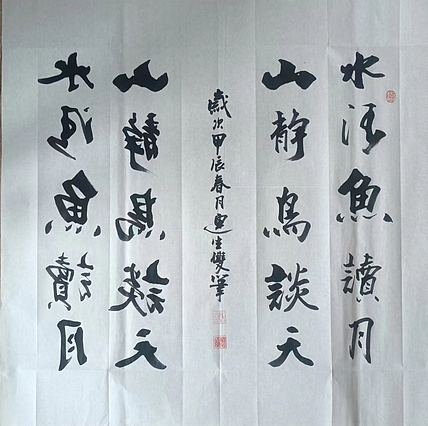 水清魚讀月
山静鳥談天
歲次甲辰春月生雙筆
山静鳥談天
水清魚讀月